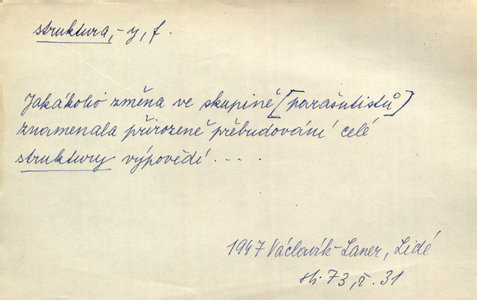 struktura, -y, f.
Jakákoli změna ve skupině [parašutistů]
znamenala přirozeně přebudování celé
struktury výpovědí ....
1947 Václavík-Laner, Lidé
str. 73, ř. 31